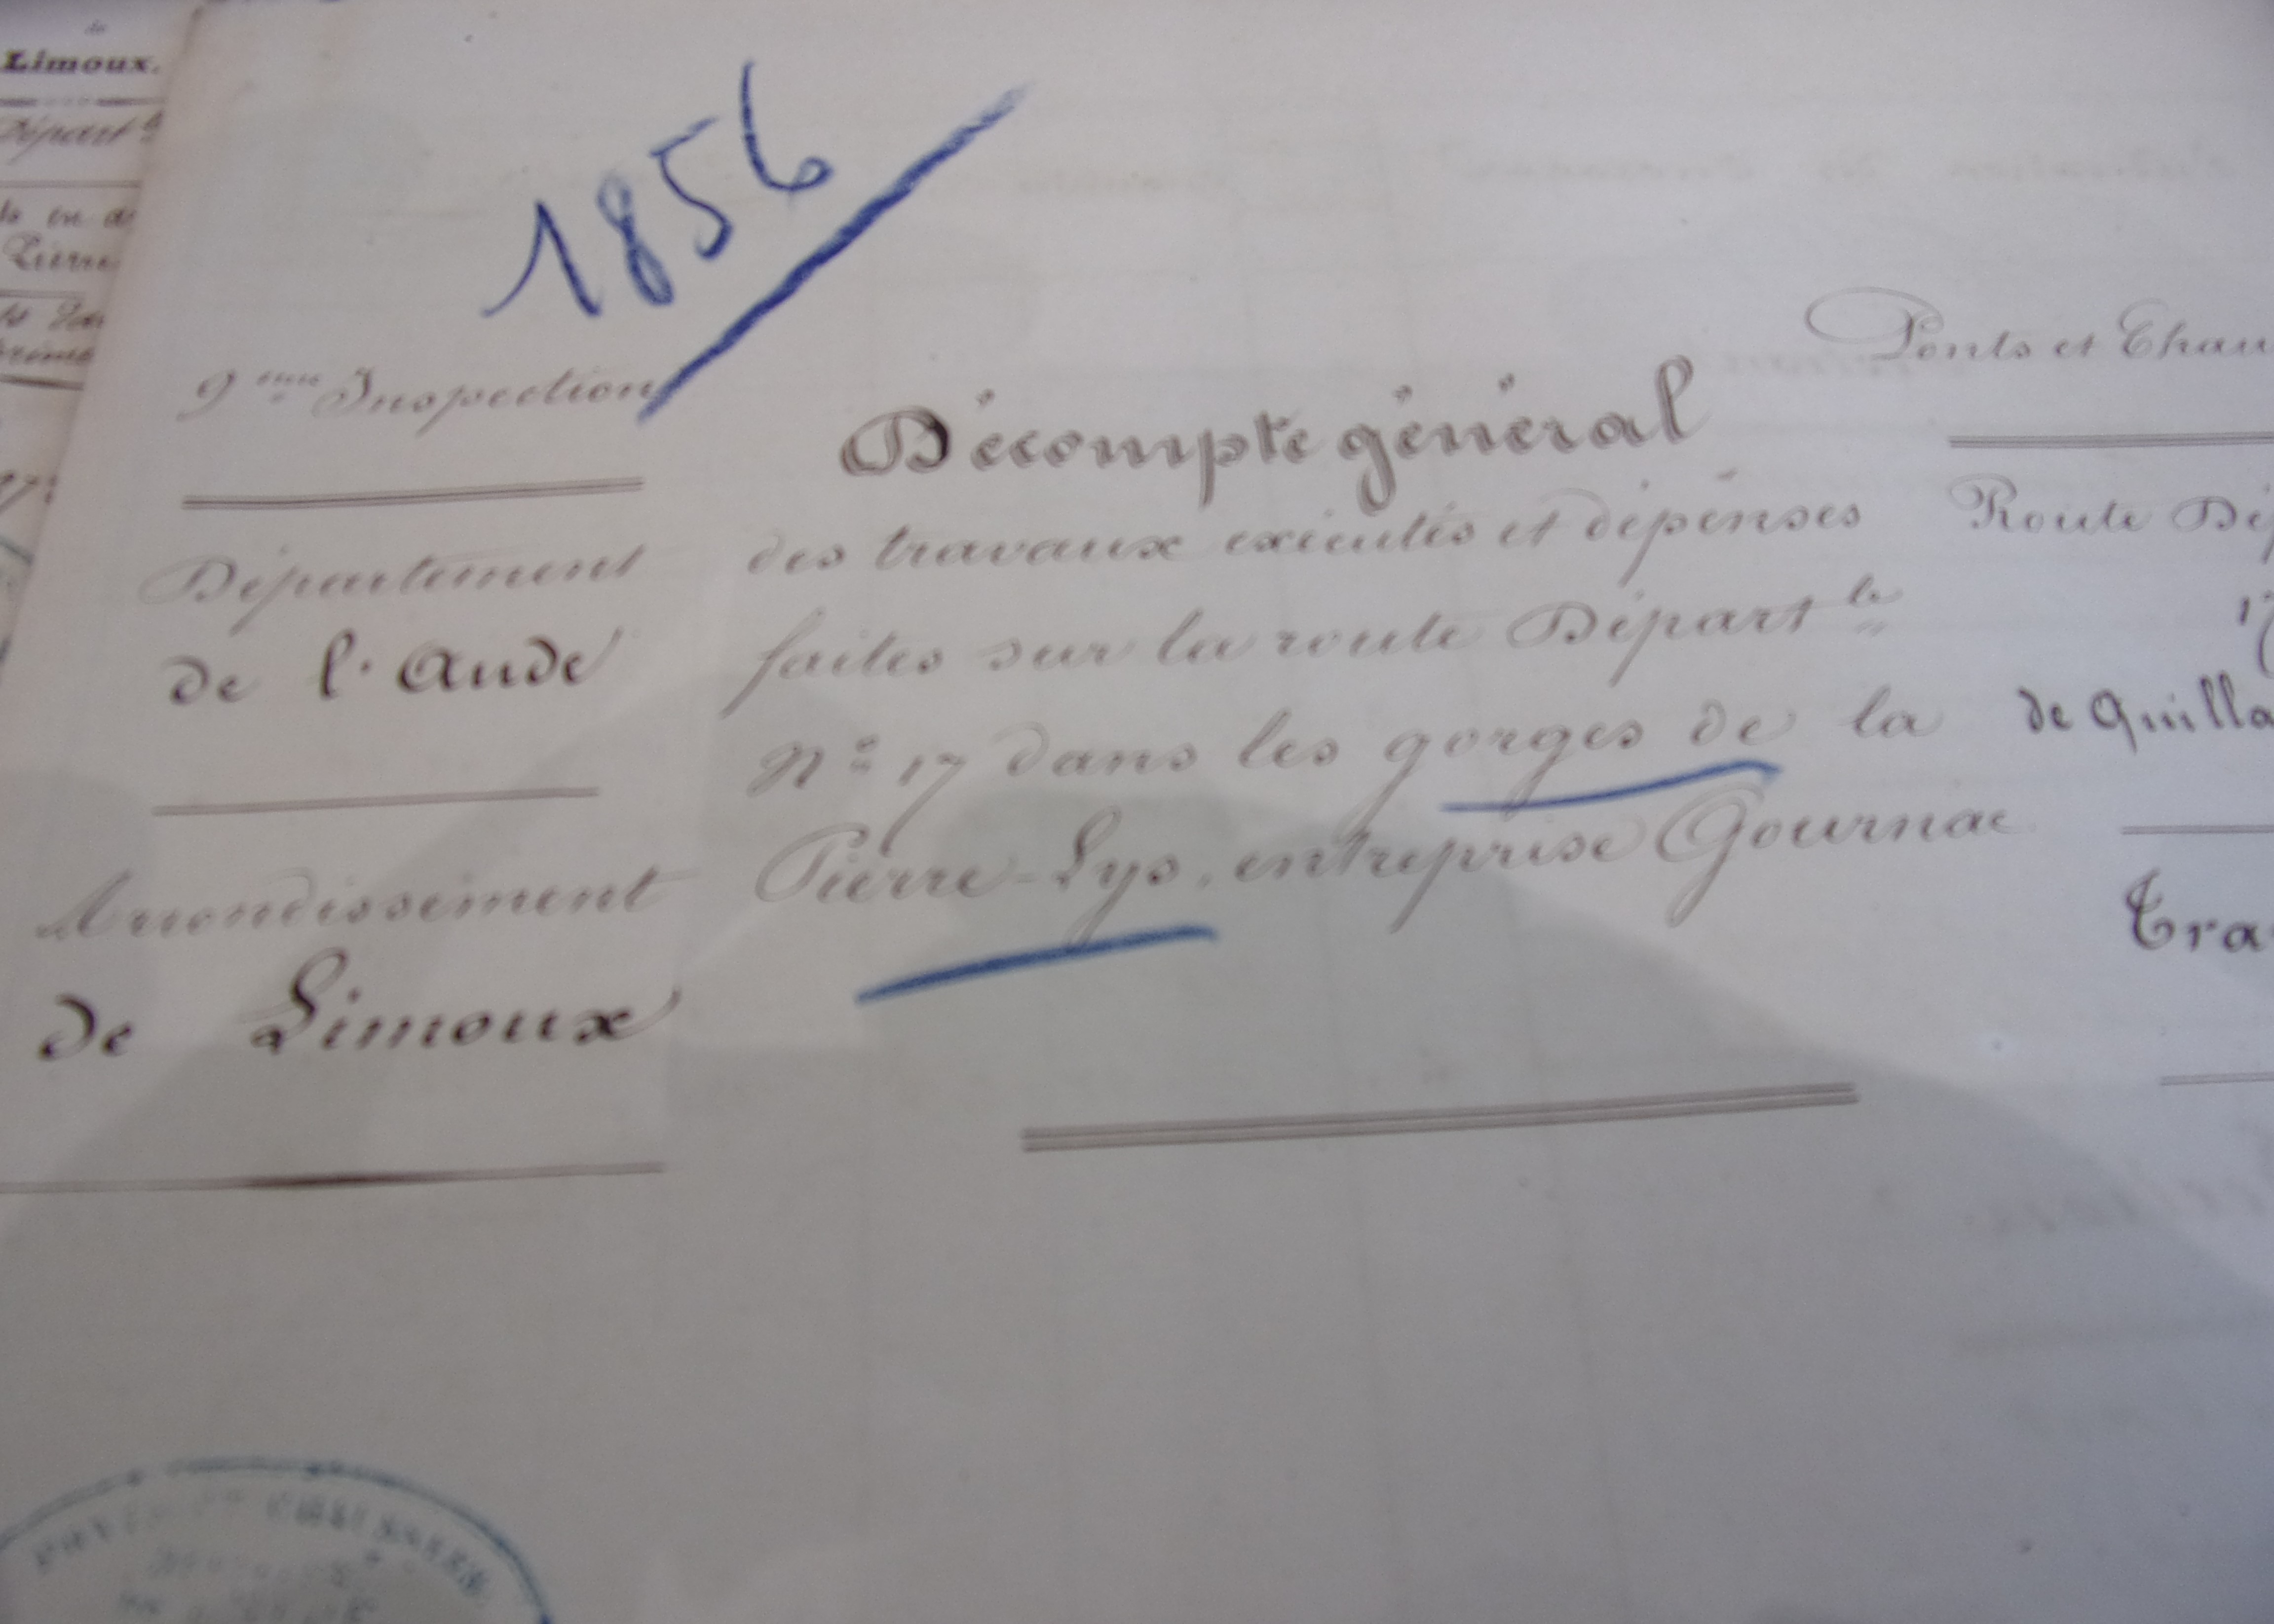 de
Limoux.
Départ le
1856
9 eme Inspection
Département
de l'Aude
Arrondissement
de Limoux
Décompte général
des travaux exécutés et dépenses
faites sur la route Départ le
N° 17 dans les gorges de la
Pierre-Lys, entreprise Gournac
Ponts et Chau
Route Dé
17
de Quilla
Tra
PONTS ET CHAUSSÉES